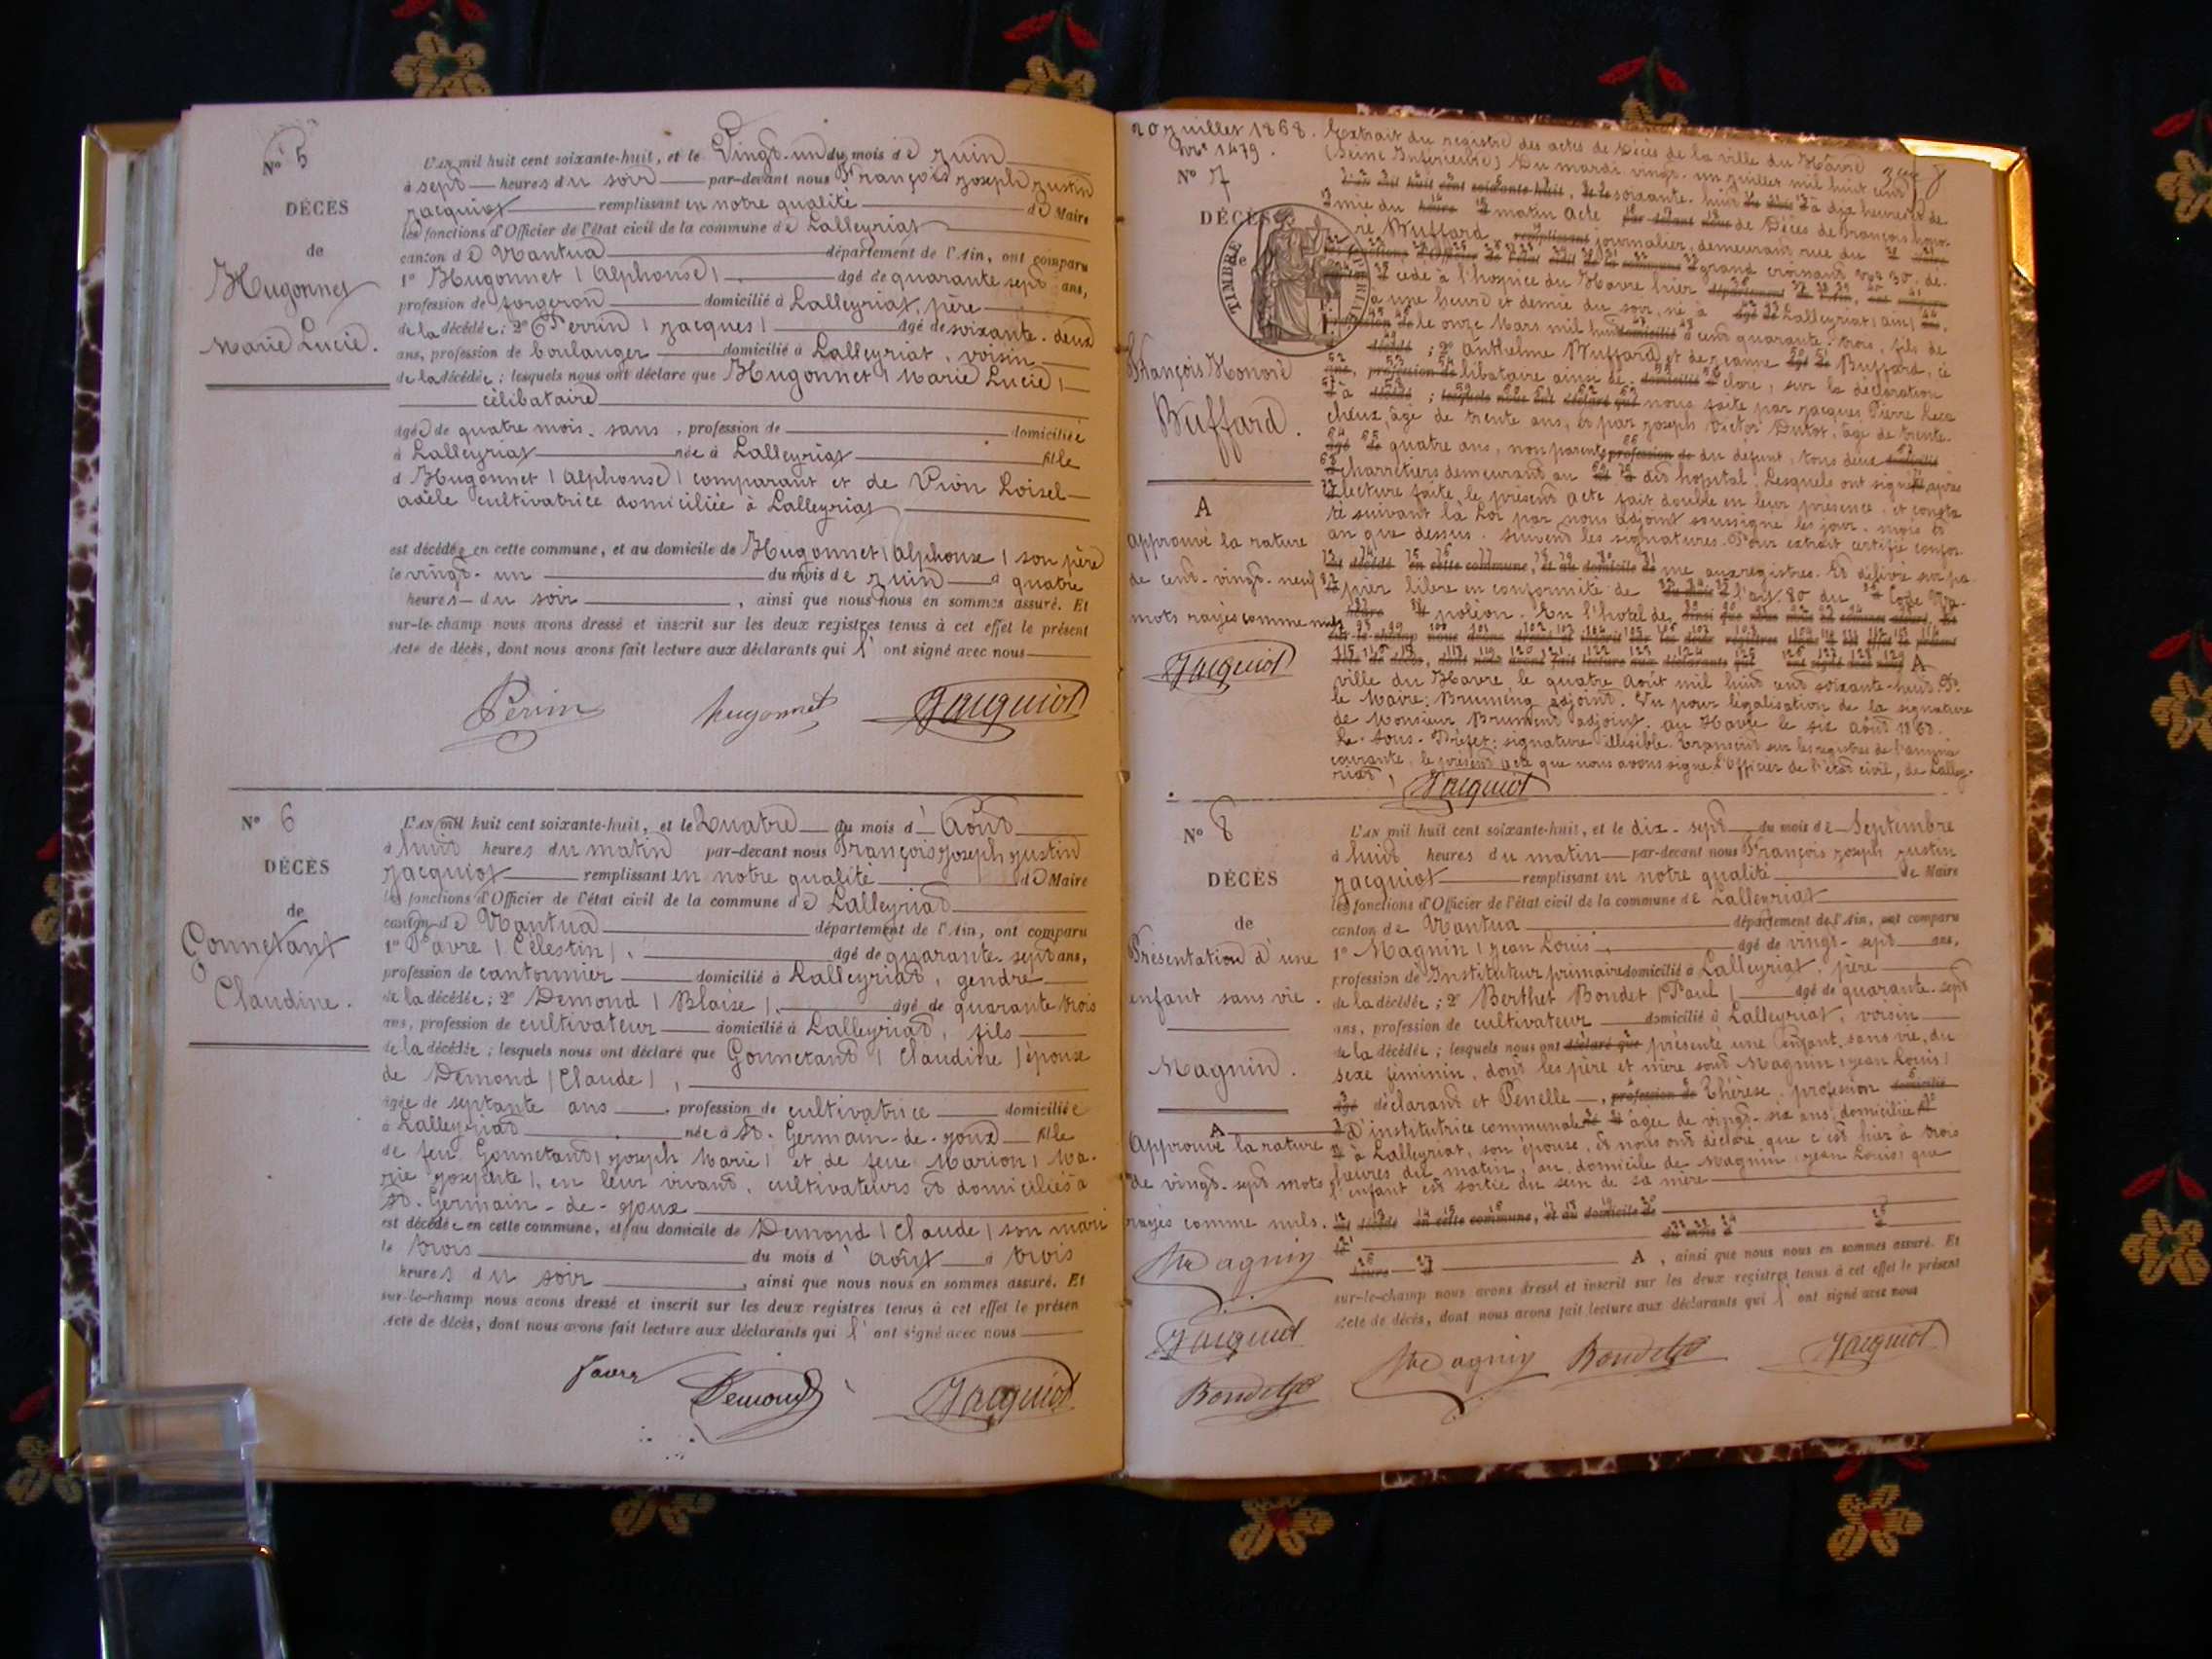 N° 5
DÉCÈS
de
Hugonnet
Marie Lucie.
L'AN mil huit cent soixante-huit, et le Vingt-un du mois de Juin
à sept heures du soir par-devant nous François Joseph Justin
Jacquiot remplissant en notre qualité de Maire
les fonctions d'Officier de l'état civil de la commune de Lalleyriat
canton de Nantua département de l'Ain, ont comparu
1° Hugonnet (Alphonse), âgé de quarante sept ans,
profession de forgeron domicilié à Lalleyriat, père
de la décédée; 2° Perrin (Jacques) âgé de soixante-deux
ans, profession de boulanger domicilié à Lalleyriat, voisin
de la décédée; lesquels nous ont déclaré que Hugonnet (Marie Lucie)
célibataire
âgée de quatre mois, sans, profession de domiciliée
à Lalleyriat née à Lalleyriat fille
d'Hugonnet (Alphonse) comparant et de Vion Loisel
adèle cultivatrice domiciliée à Lalleyriat
est décédée en cette commune, et au domicile de Hugonnet (Alphonse) son père
le vingt-un du mois de Juin à quatre
heures du soir, ainsi que nous nous en sommes assuré. Et
sur-le-champ nous avons dressé et inscrit sur les deux registres tenus à cet effet le présent
Acte de décès, dont nous avons fait lecture aux déclarants qui l'ont signé avec nous
Perin hugonnet Jacquiot
N° 6
DÉCÈS
de
Gonnetant
Claudine.
L'AN mil huit cent soixante-huit, et le Quatre du mois d'Août
à huit heures du matin par-devant nous François Joseph Justin
Jacquiot remplissant en notre qualité de Maire
les fonctions d'Officier de l'état civil de la commune de Lalleyriat
canton de Nantua département de l'Ain, ont comparu
1° Favre (Célestin), âgé de quarante-sept ans,
profession de cantonnier domicilié à Lalleyriat, gendre
de la décédée; 2° Demond (Blaise), âgé de quarante trois
ans, profession de cultivateur domicilié à Lalleyriat, fils
de la décédée; lesquels nous ont déclaré que Gonnetant (Claudine) épouse
de Demond (Claude),
âgée de septante ans, profession de cultivatrice domiciliée
à Lalleyriat née à St. Germain-de-Joux fille
de feu Gonnetant (Joseph Marie) et de feue Marion (Ma-
rie Josephte), en leur vivant, cultivateurs et domiciliés à
St. Germain-de-Joux
est décédée en cette commune, et au domicile de Demond (Claude) son mari
le trois du mois d'août à trois
heures du soir, ainsi que nous nous en sommes assuré. Et
sur-le-champ nous avons dressé et inscrit sur les deux registres tenus à cet effet le présen
Acte de décès, dont nous avons fait lecture aux déclarants qui l'ont signé avec nous
Favre Demond Jacquiot
20 Juillet 1868.
N° 1479.
N° 7
DÉCÈS
de
TIMBRE IMPÉRIAL
François Honoré
Buffard.
A
Approuvé la rature
de cent-vingt-neuf
mots rayés comme nuls
Jacquiot
Extrait du registre des actes de Décès de la ville du Havre
(Seine Inférieure) Du mardi vingt-un juillet mil huit cent
soixante-huit à dix heures de-
mie du matin Acte de Décès de François hono-
ré Buffard, journalier, demeurant rue du
grand croissant N° 30, dé-
cédé à l'hospice du Havre hier
à une heure et demie du soir, né à Lalleyriat (ain)
le onze Mars mil huit cent quarante-trois, fils de
Anthelme Buffard et de Jeanne Buffard, cé-
libataire ainsi dé-clare, sur la déclaration
à nous faite par Jacques Pierre
âgé de trente ans, et par Joseph Victor Dutot, âgé de trente-
quatre ans, non parents du défunt, tous deux
charretiers demeurant au dit hopital. Lesquels ont signé après
lecture faite le présent acte fait double en leur présence, et consta-
té suivant la Loi par nous adjoint soussigné les jour, mois et
an que dessus. Suivent les signatures. Pour extrait certifié confor-
me aux registres. Et délivré sur pa-
pier libre en conformité de l'art. 80 du Code Na-
poléon. En l'hotel de
A
ville du Havre le quatre août mil huit cent soixante-huit. Pr
le Maire: adjoint. Vu pour légalisation de la signature
de Monsieur adjoint. au Havre le six août 1868.
Le Sous-Préfet: signature illisible. Transcrit sur les registres de l'année
courante, le présent acte que nous avons signé. L'Officier de l'état civil, de Lalley-
riat,
Jacquiot
N° 8
DÉCÈS
de
Présentation d'une
enfant sans vie.
Magnin.
A
Approuvé la rature
de vingt-sept mots
rayés comme nuls.
Magnin
Jacquiot
Bondet
L'AN mil huit cent soixante-huit, et le dix-sept du mois de Septembre
à huit heures du matin par-devant nous François Joseph Justin
Jacquiot remplissant en notre qualité de Maire
les fonctions d'Officier de l'état civil de la commune de Lalleyriat
canton de Nantua département de l'Ain, ont comparu
1° Magnin (Jean Louis), âgé de vingt-sept ans,
profession de Instituteur primaire domicilié à Lalleyriat, père
de la décédée; 2° Berthet Bondet (Paul) âgé de quarante-sept
ans, profession de cultivateur domicilié à Lalleyriat, voisin
de la décédée; lesquels nous ont déclaré que présenté une enfant, sans vie, du
sexe féminin, dont les père et mère sont Magnin (Jean Louis)
âgé déclarant et Penelle, profession de Thérèse, profession domicilié
D'institutrice communale âgée de vingt-six ans, domiciliée
à Lalleyriat, son épouse, et nous ont déclaré que c'est hier à trois
heures du matin, au domicile de Magnin (Jean Louis) que
l'enfant est sortie du sein de sa mère
est décédé en cette commune, et au domicile de
du mois d
heures A, ainsi que nous nous en sommes assuré. Et
sur-le-champ nous avons dressé et inscrit sur les deux registres tenus à cet effet le présent
Acte de décès, dont nous avons fait lecture aux déclarants qui l'ont signé avec nous
Magnin Bondet Jacquiot